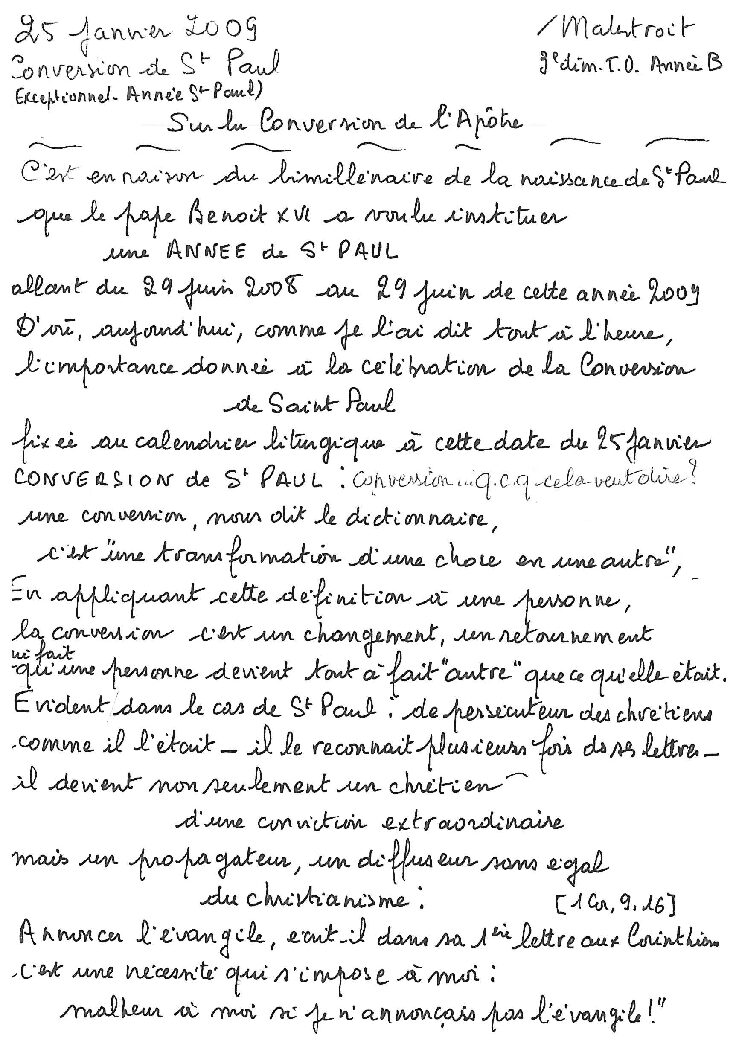 25 Janvier 2009
/Malestroit
Conversion de St Paul
3e dim. T.O. Année B
Exceptionnel. Année St Paul)
Sur la Conversion de l'Apôtre
C'est en raison du bimillénaire de la naissance de St Paul
que le pape Benoit XVI a voulu instituer
une ANNEE de St PAUL
allant du 29 Juin 2008 au 29 Juin de cette année 2009
D'où, aujourd'hui, comme je l'ai dit tout à l'heure,
l'importance donnée à la célébration de la Conversion
de Saint Paul
fixée au calendrier liturgique à cette date du 25 Janvier
CONVERSION de St PAUL : Conversion... q.c.q cela veut dire ?
une conversion, nous dit le dictionnaire,
c'est "une transformation d'une chose en une autre",
En appliquant cette définition à une personne,
la conversion c'est un changement, un retournement
ui fait
qu'une personne devient tout à fait "autre" que ce qu'elle était.
Evident dans le cas de St Paul : de persécuteur des chrétiens
comme il l'était – il le reconnait plusieurs fois ds ses lettres –
il devient non seulement un chrétien
d'une conviction extraordinaire
mais un propagateur, un diffuseur sans égal
du christianisme :
[1 Cor, 9. 16]
Annoncer l'évangile, écrit-il dans sa 1ère lettre aux Corinthiens
c'est une nécessité qui s'impose à moi :
malheur à moi si je n'annonçais pas l'évangile !"